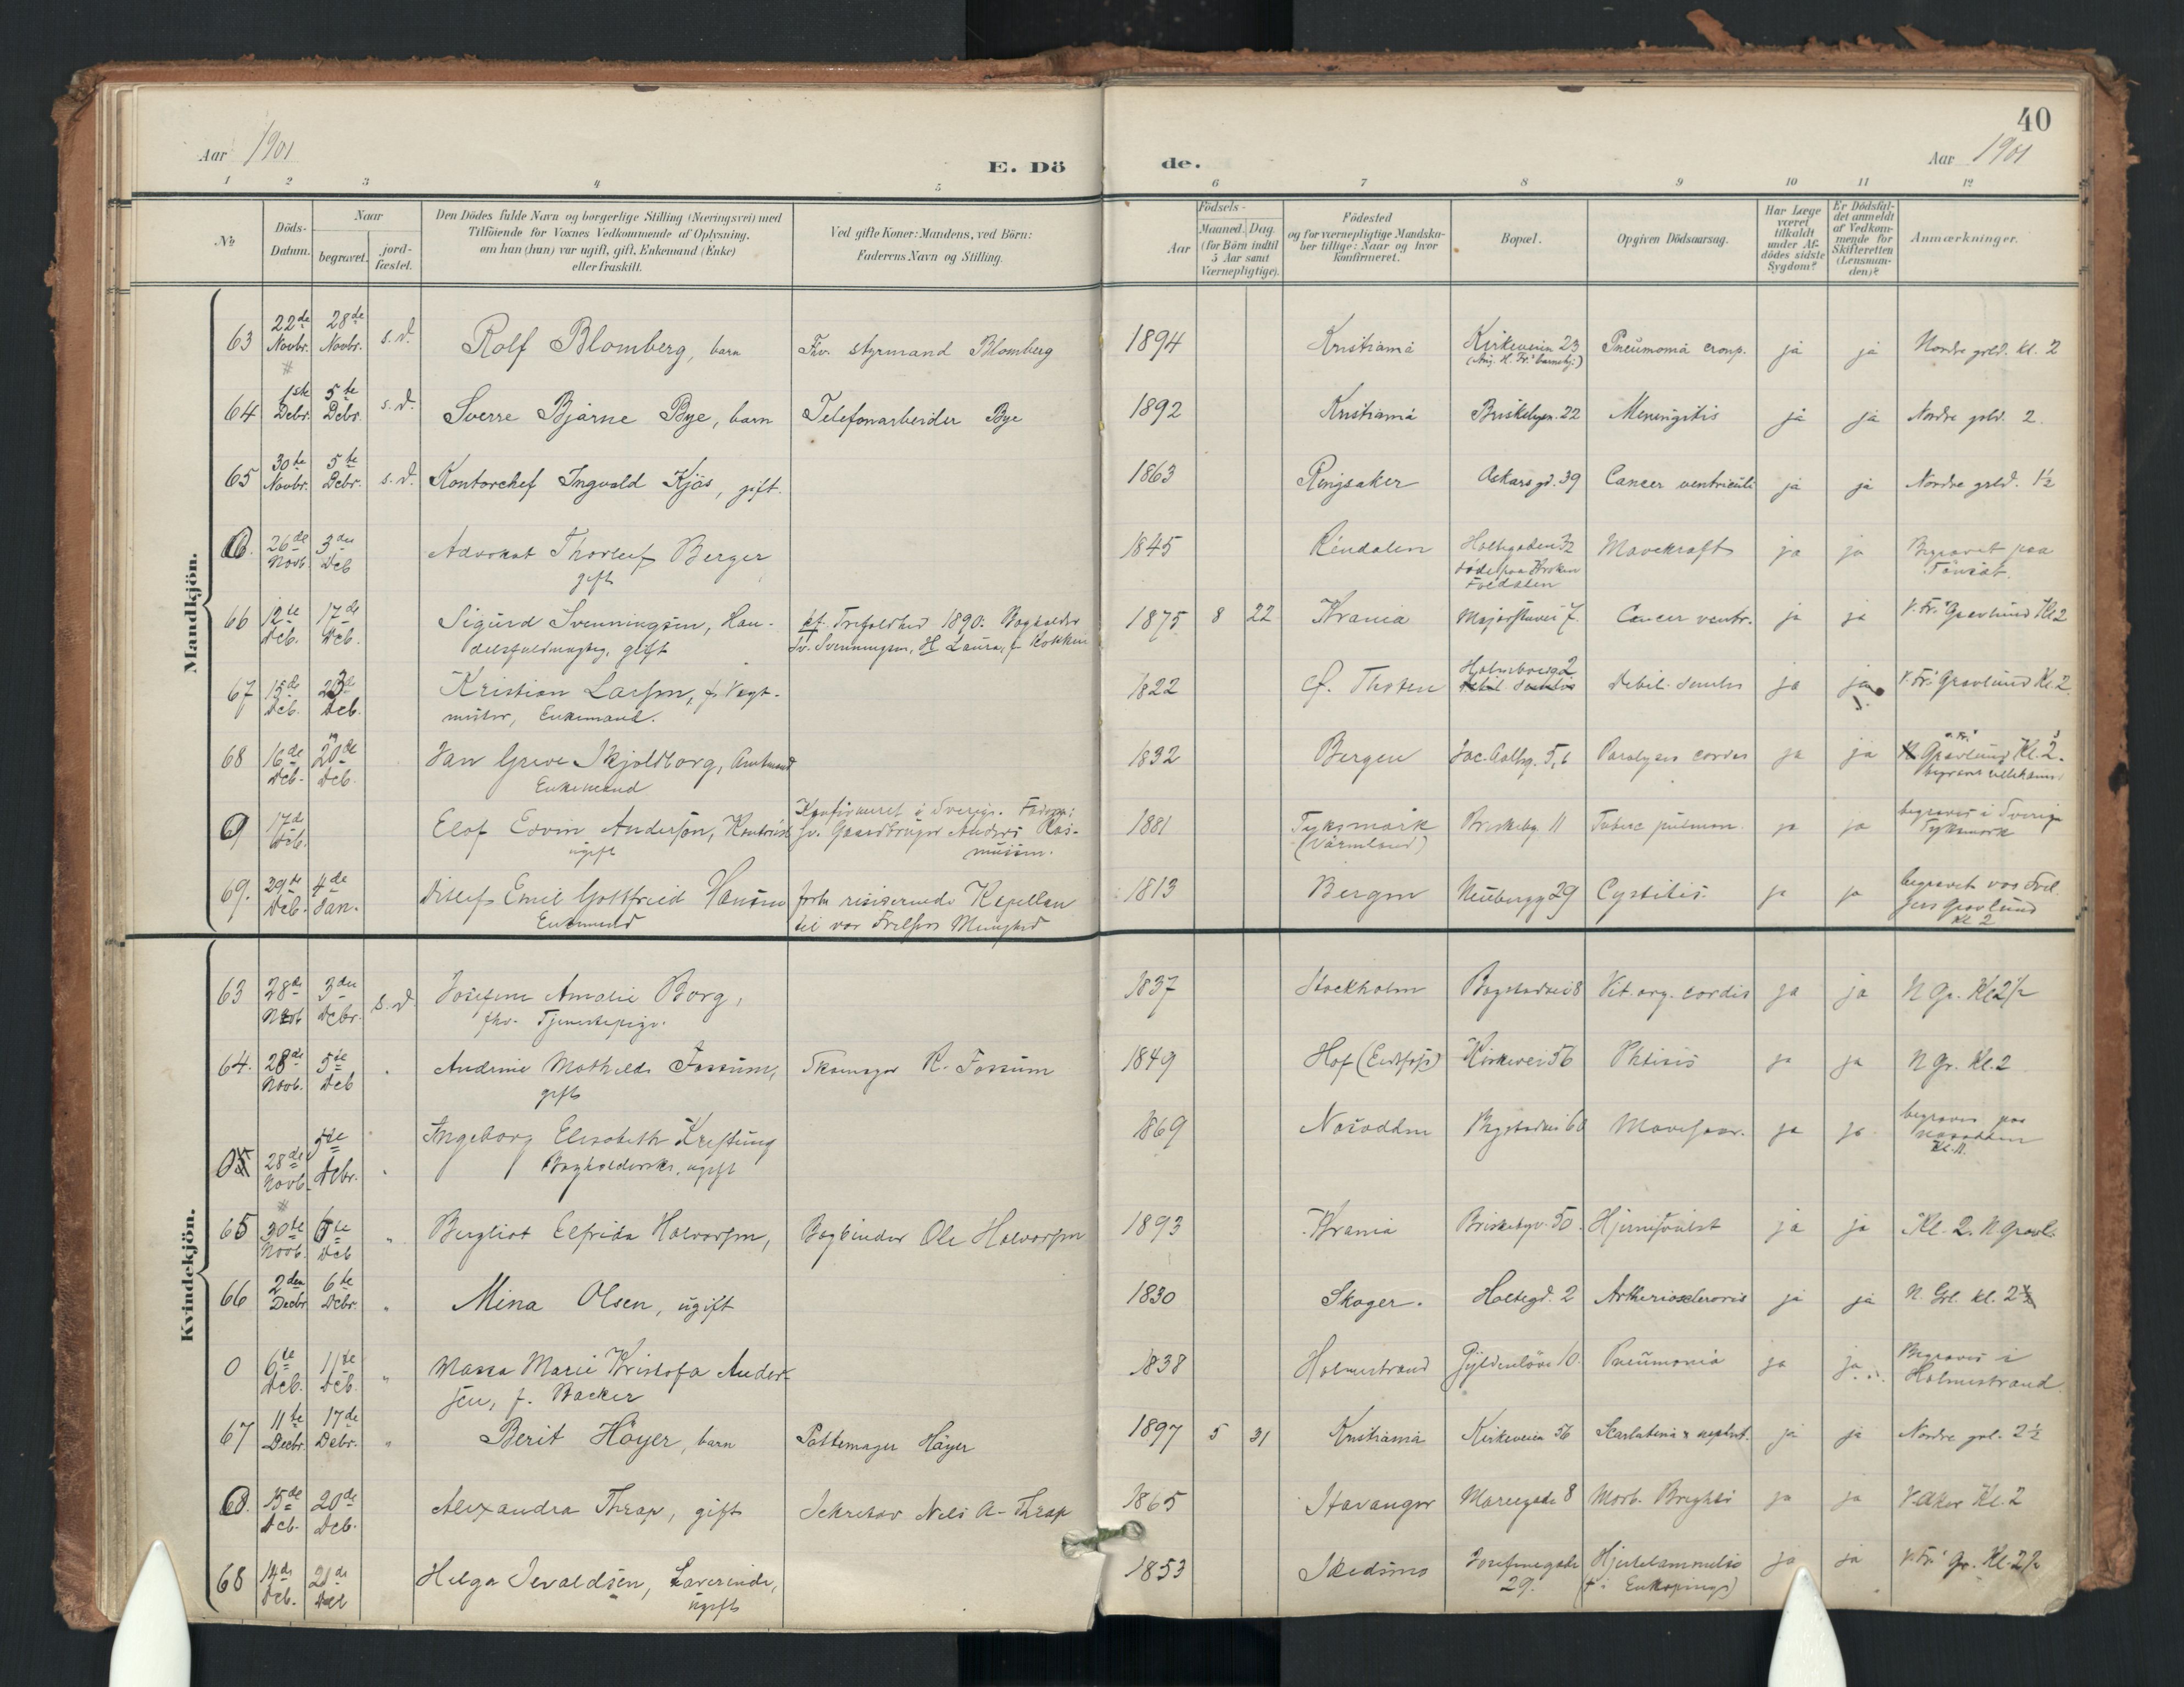 40
Aar 1901
E. Dö
de.
Aar 1901
1 2 3 4 5 6 7 8 9 10 11 12
№
Döds-
Datum.
Naar
begravet.
jord-
fæstet.
Den Dödes fulde Navn og borgerlige Stilling (Næringsvei) med
Tilföiende for Voxnes Vedkommende af Oplysning.
om han (hun) var ugift, gift, Enkemand (Enke)
eller fraskilt.
Ved gifte Koner: Mandens, ved Börn:
Faderens Navn og Stilling.
Aar
Födsels-
Maaned. Dag.
(for Börn indtil
5 Aar samt
Værnepligtige).
Födested
og for værnepligtige Mandska-
ber tillige: Naar og hvor
konfirmeret.
Bopæl.
Opgiven Dödsaarsag.
Har Læge
været
tilkaldt
under Af-
dödes sidste
Sygdom?
Er Dödsfal-
det anmeldt
af Vedkom-
mende for
Skifteretten
(Lensman-
den)?
Anmærkninger.
Mandkjön.
63 22de Novbr. 28de Novbr. s. d. Rolf Blomberg, barn Fhv. styrmand Blomberg 1894 Kristiania Kirkeveien 23 Pneumonia croup. ja ja Nordre grld. kl. 2
64 1ste Debr. 5te Debr. s. d. Sverre Bjarne Bye, barn Telefonarbeider Bye 1892 Kristiania Briskebyn. 22 Meningitis ja ja Nordre grld. 2.
65 30te Novbr. 5te Debr. s. d. Kontorchef Ingvald Kjös, gift. 1863 Ringsaker Oskarsgd. 39 Cancer ventriculi ja ja Nordre grld. 1½
26de Novb. 3die Deb Advokat Thorleif Berger 1845 Rendalen Holtegaden 32 Mavekræft ja ja Begravet paa
gift Tönset.
66 12te Deb. 17de Deb. Sigurd Svenningsen, Han- kf. Trefoldhed 1890. Bogholder 1875 8 22 Krania Majorstuvei 7. Cancer ventr. ja ja V. Fr. Gravlund Kl 2
delsfuldmægtig, gift Sv. Svenningsen, H Laura f. Kokkin
67 15de Deb. 23de Deb. Kristian Larsen, f. Vagt- 1822 Ø. Thoten Holmboesg 2 Debil. senilis ja ja V. Fr. Gravlund Kl. 2.
mester, Enkemand.
68 16de Deb. 20de Deb. Jan Greve Skjoldborg, Amtmand 1832 Bergen Jac. Aallsg. 5, 6 Paralysis cordis ja ja Gravlund Kl. 2.
Enkemand
0 17de Deb. Elof Edvin Anderson, Kontorist Konfirmeret i Sverige. Fader: 1881 Tyksmark Briskeby. 11 Tuberc pulmon. ja ja begraves i Sverige
ugift fv. Gaardbruger Anders Ras- (Värmland) Tyksmark
musson.
69. 29de Deb. 4de Jan. Ditlef Emil Gottfried Hansen forh. resiserende Kapellan 1813 Bergen Neubergg 29 Cystitis. ja ja begravet vor Frel
Enkemand til vor Frelsers Menighed sers Gravlund
Kl 2
Kvindekjön.
63 28de Novb 3die Debr. s. d. Josefine Amalie Borg, 1837 Stockholm Bogstadvei 8 Vit. org. cordis ja ja N Gr. Kl 2½
fhv. Tjenestepige.
64. 28de Novb. 5te Deb Andrine Mathilde Fossum, Skomager R. Fossum 1849 Hof (Eidsfoss) Kirkevei 56 Phtisis ja ja N Gr. Kl. 2
gift
28de Novb. 5te Debr. Ingeborg Elisabeth Krefting 1869 Nesodden Bogstadvei 60 Mavesaar. ja ja begraves paa
Bogholderske, ugift Nesodden
65 30te Novb. 6te Deb Bergliot Elfrida Halvorsen, Bogbinder Ole Halvorsen 1893 Krania Briskebyv. 50 Hjernesvulst ja ja Kl. 2. N Gravl.
66 2den Decbr 6te Debr. Mina Olsen, ugift 1830 Skoger. Holtegd. 2 Artheriosclerosis ja ja N. Grl. kl. 2
0 6te Deb. 11te Deb. Massa Marie Kristofa Ander- 1838 Holmestrand Gyldenlöve 10. Pneumonia ja ja Begraves i
sen, f. Backer Holmestrand
67 11te Decbr 17de Debr. Berit Höyer, barn Pottemager Höyer 1897 5 31 Kristiania Kirkeveien 56 Scarlatina & nephrit. ja ja Nordre grl. 2½
15de Deb. 20de Deb. Alexandra Thrap, gift Sekretær Nils A. Thrap 1865 Stavanger Mariegade 8 Morb. Brighti ja ja V. Aker Kl. 2
68 14de Deb. 21de Deb Helga Sevaldsen, Lærerinde, 1853 Skedsmo Josefinegade Hjertelammelse ja ja V. Fr. Gr. Kl. 2½
ugift 29.